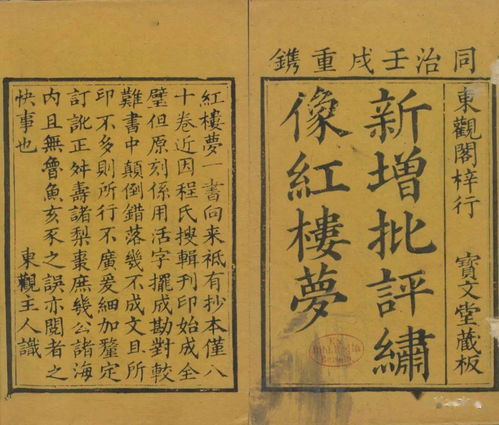 同治壬戌重鐫
東觀閣梓行
寶文堂藏板
新增批評繡
像紅樓夢
紅樓夢一書向来祗有抄本僅八
十卷近因程氏搜輯刊印始成全
璧但原刻係用活字擺成勘對較
難書中顛倒錯落幾不成文且所
印不多則所行不廣爰細加釐定
訂訛正舛壽諸梨棗庶幾公諸海
内且無魯魚亥豕之誤亦閱者之
快事也
東觀主人識